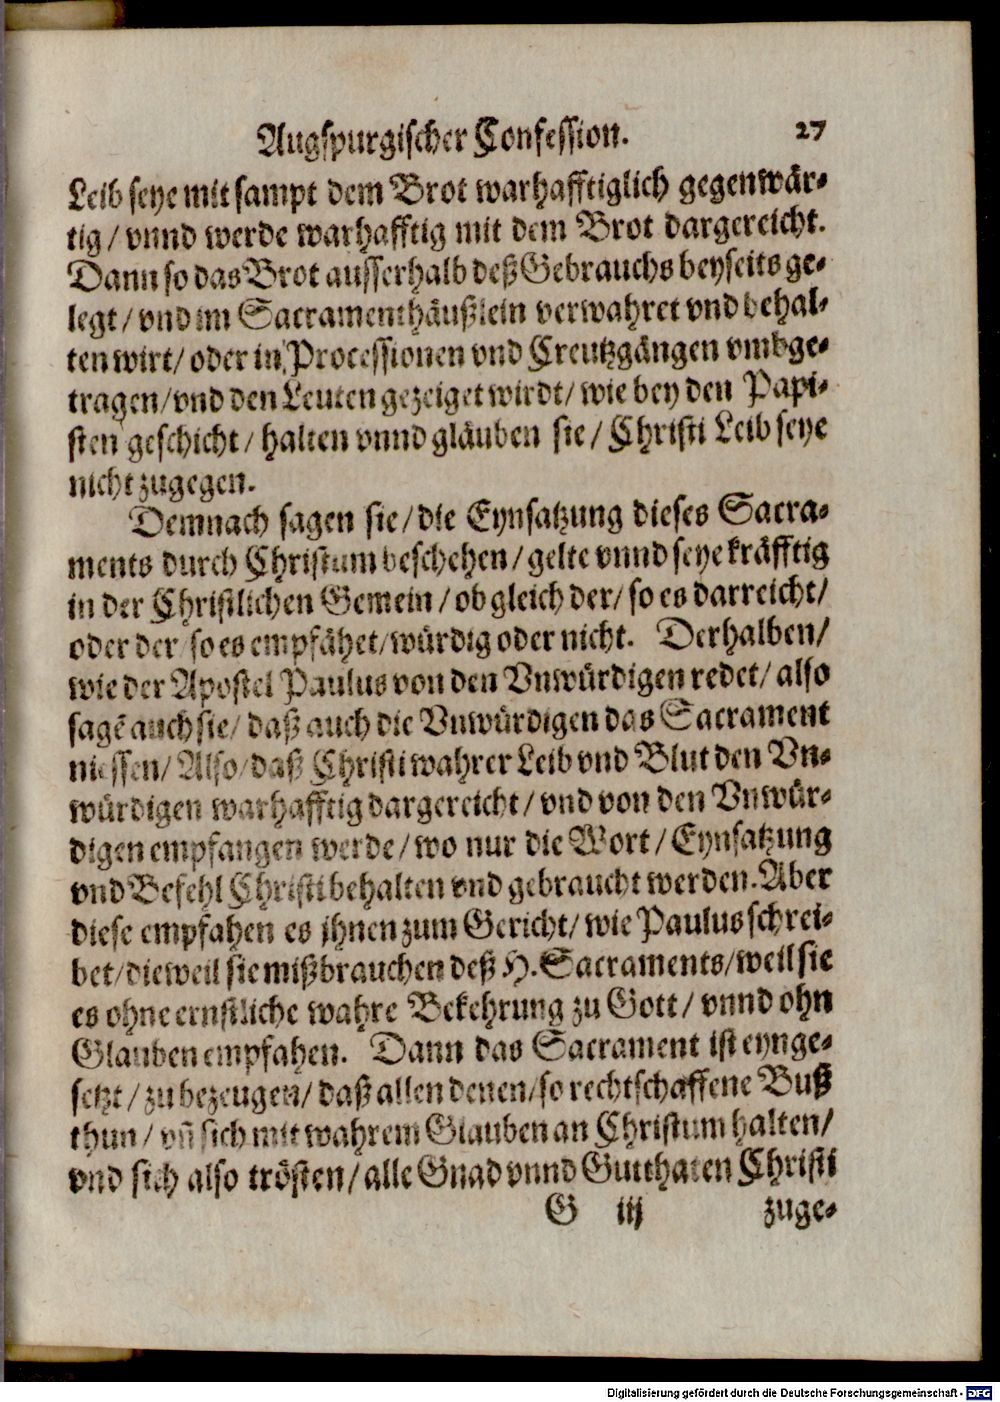 Augspurgischer Confession. 27
Leib seye mit sampt dem Brot warhafftiglich gegenwär-
tig / vnnd werde warhafftig mit dem Brot dargereicht.
Dann so das Brot ausserhalb deß Gebrauchs beyseits ge-
legt / vnd im Sacramenthäußlein verwahret vnd behal-
ten wirt / oder in Processionen vnd Creutzgängen vmbge-
tragen / vnd den Leuten gezeiget wirdt / wie bey den Papi-
sten geschicht / halten vnnd gläuben sie / Christi Leib seye
nicht zugegen.
Demnach sagen sie / die Eynsatzung dieses Sacra-
ments durch Christum beschehen / gelte vnnd seye kräfftig
in der Christlichen Gemein / ob gleich der / so es darreicht /
oder der / so es empfähet / würdig oder nicht. Derhalben /
wie der Apostel Paulus von den Vnwürdigen redet / also
sagẽ auch sie / daß auch die Vnwürdigen das Sacrament
niessen / Also / daß Christi wahrer Leib vnd Blut den Vn-
würdigen warhafftig dargereicht / vnd von den Vnwür-
digen empfangen werde / wo nur die Wort / Eynsatzung
vnd Befehl Christi behalten vnd gebraucht werden. Aber
diese empfahen es jhnen zum Gericht / wie Paulus schrei-
bet / dieweil sie mißbrauchen deß H. Sacraments / weil sie
es ohne ernstliche wahre Bekehrung zu Gott / vnnd ohn
Glauben empfahen. Dann das Sacrament ist eynge-
setzt / zu bezeugen / daß allen denen / so rechtschaffene Buß
thun / vñ sich mit wahrem Glauben an Christum halten /
vnd sich also trösten / alle Gnad vnnd Gutthaten Christi
G iij zuge-
Digitalisierung gefördert durch die Deutsche Forschungsgemeinschaft - DFG